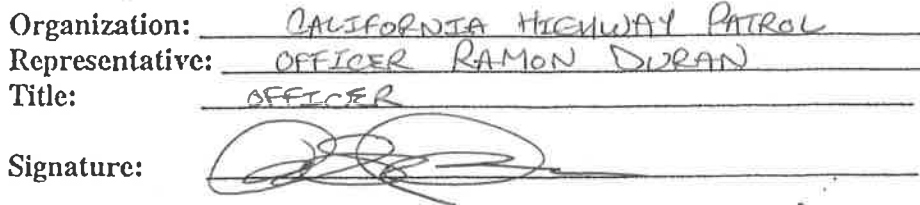 Organization: CALIFORNIA HIGHWAY PATROL
Representative: OFFICER RAMON DURAN
Title: OFFICER
Signature: